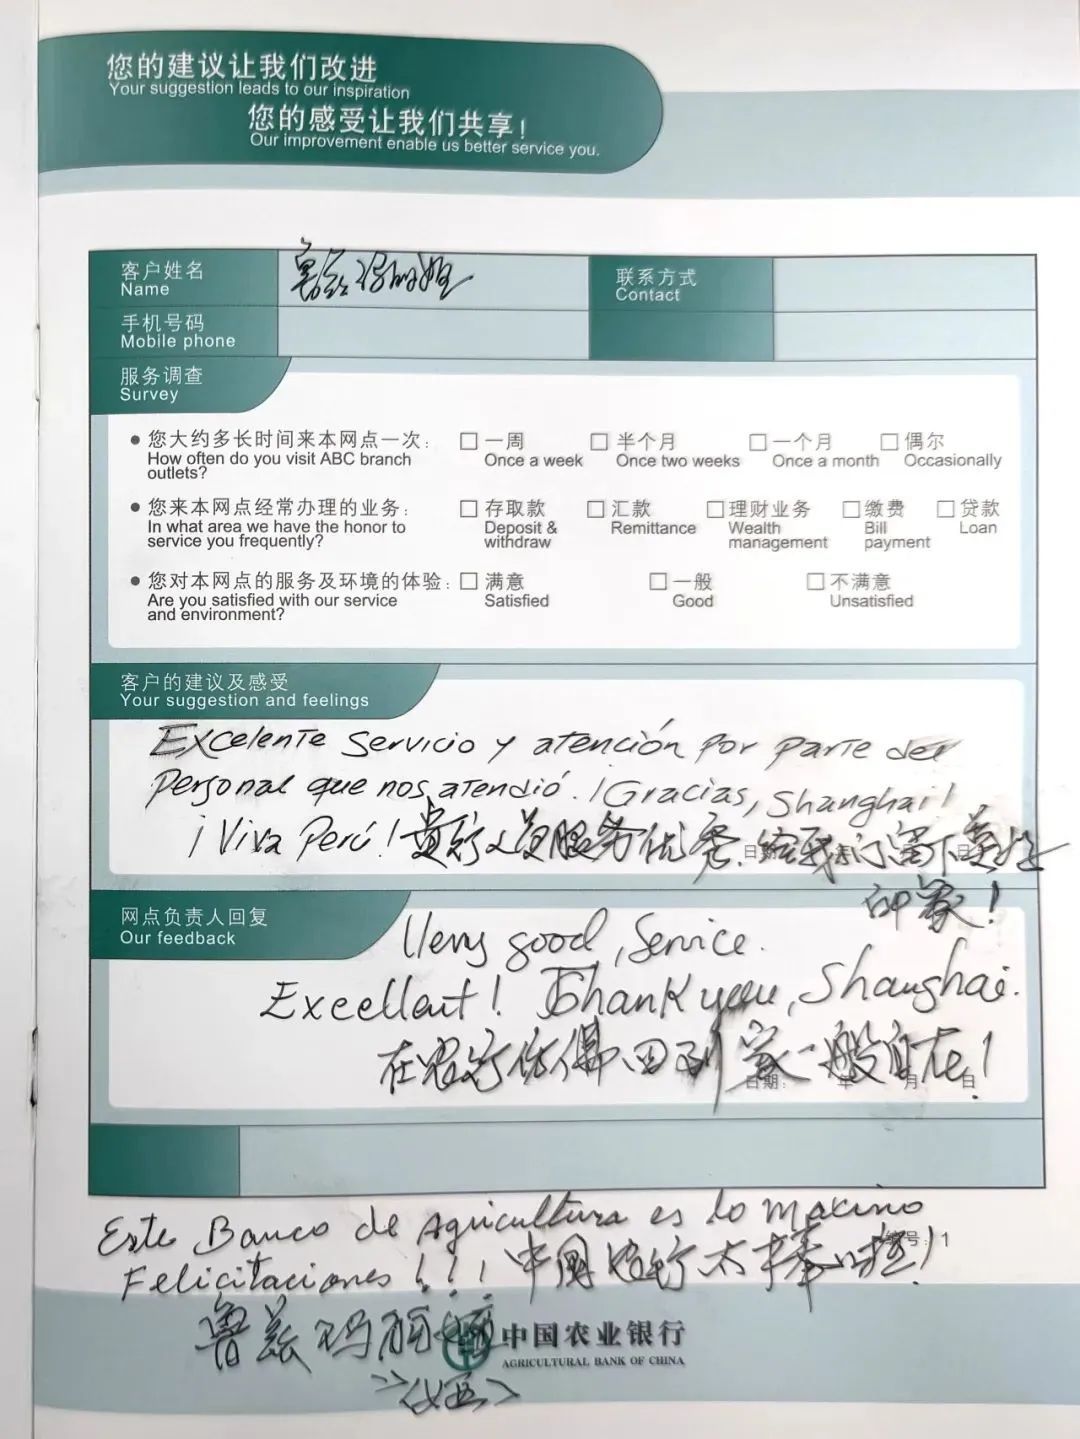 您的建议让我们改进
Your suggestion leads to our inspiration
您的感受让我们共享!
Our improvement enable us better service you.
客户姓名
Name
联系方式
Contact
手机号码
Mobile phone
服务调查
Survey
您大约多长时间来本网点一次: □ 一周 □ 半个月 □ 一个月 □ 偶尔
How often do you visit ABC branch Once a week Once two weeks Once a month Occasionally
outlets?
您来本网点经常办理的业务: □ 存取款 □ 汇款 □ 理财业务 □ 缴费 □ 贷款
In what area we have the honor to Deposit & Remittance Wealth Bill Loan
service you frequently? withdraw management payment
您对本网点的服务及环境的体验: □ 满意 □ 一般 □ 不满意
Are you satisfied with our service Satisfied Good Unsatisfied
and environment?
客户的建议及感受
Your suggestion and feelings
Excelente servicio y atención por parte del
personal que nos atendió. ¡Gracias, Shanghai!
¡Viva Perú! 贵行人员服务优秀,给我们留下美好
印象!
日期: 年 月 日
网点负责人回复
Our feedback
Very good, Service.
Excellent! Thank you, Shanghai.
在农行仿佛回到家一般自在!
日期: 年 月 日
Este Banco de Agricultura es lo maximo
编号:1
Felicitaciones!!! 中国农行太棒啦!
鲁兹玛丽娅
中国农业银行
AGRICULTURAL BANK OF CHINA